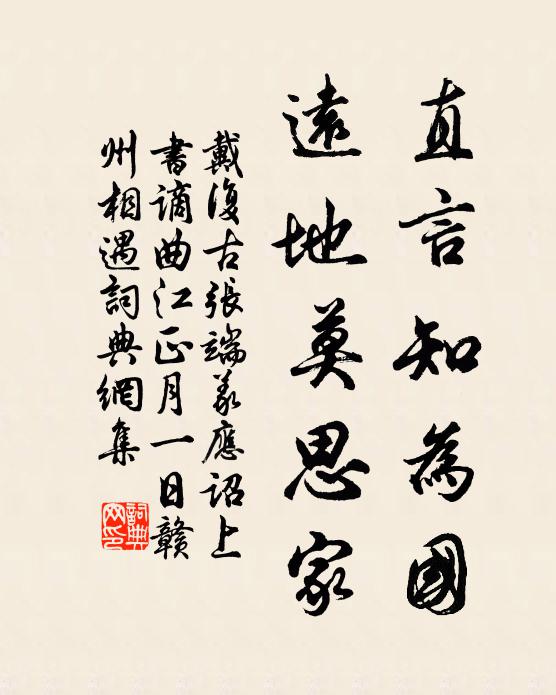 直言知為國
遠地莫思家
戴復古張端義應詔上
書謫曲江正月一日贛
州相遇詞典網集
詞典
网印